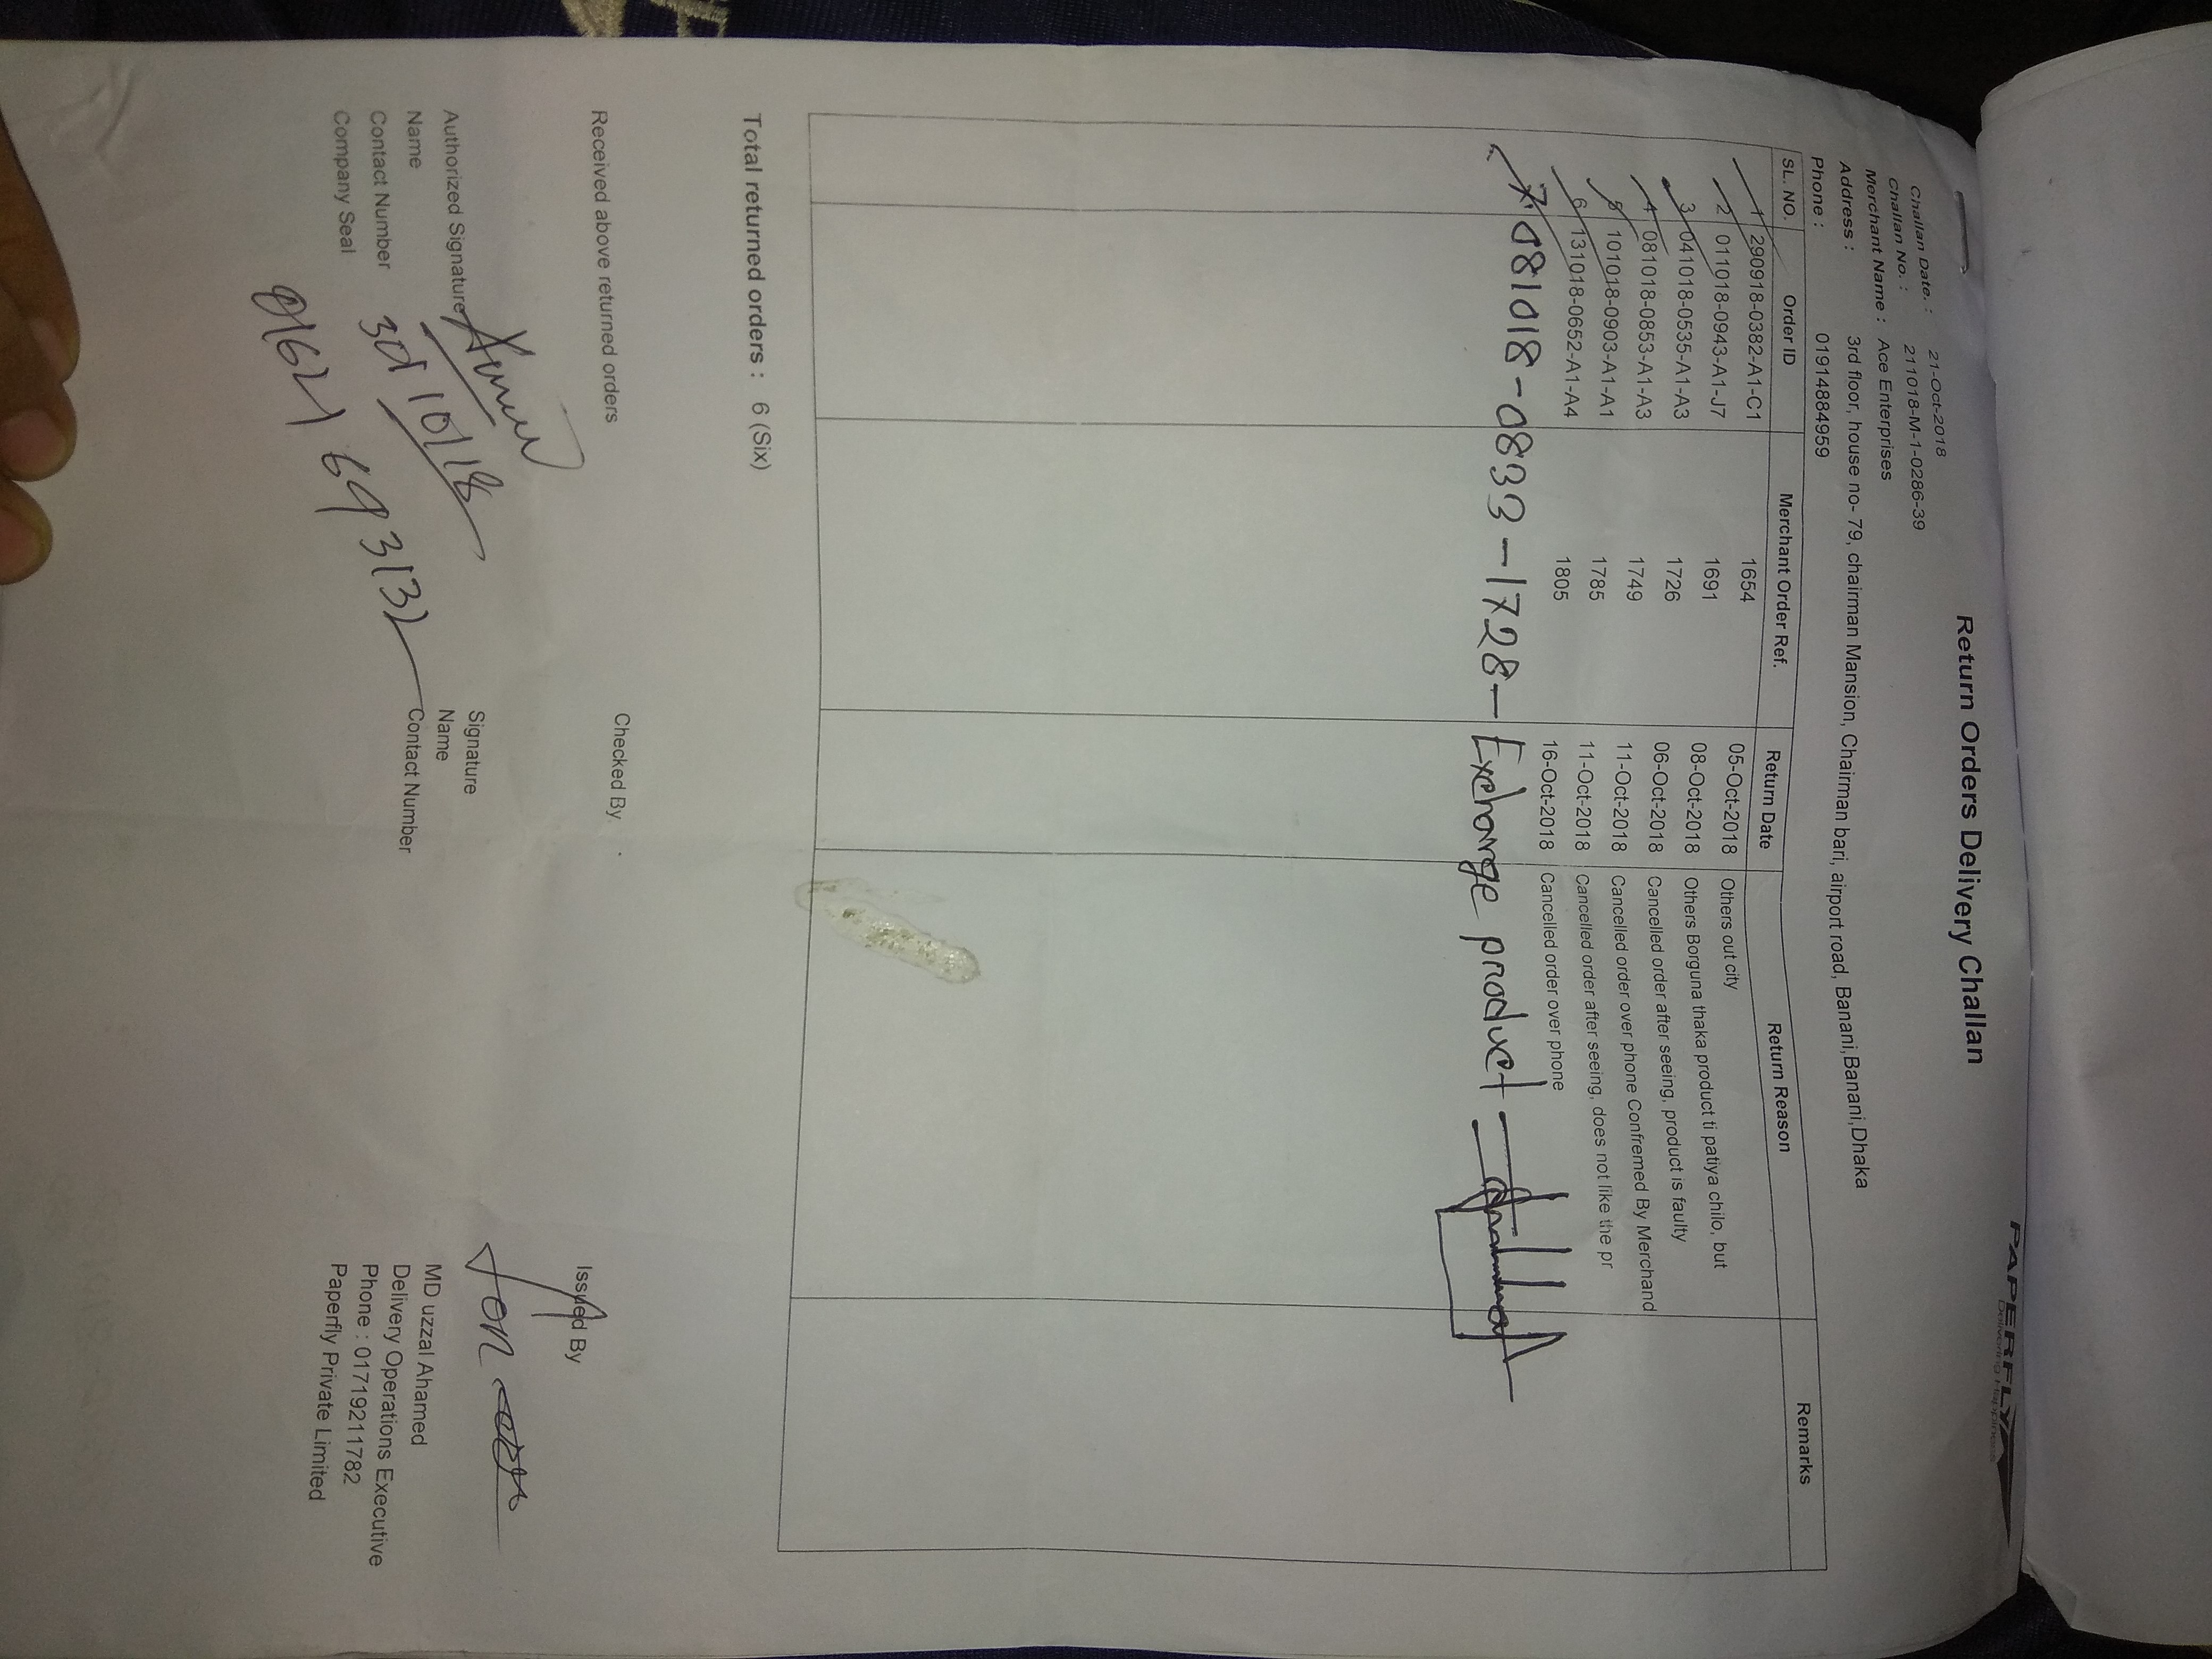 PAPERFLY
Delivering Happiness
Return Orders Delivery Challan
Challan Date. : 21-Oct-2018
Challan No. : 211018-M-1-0286-39
Merchant Name : Ace Enterprises
Address : 3rd floor, house no- 79, chairman Mansion, Chairman bari, airport road, Banani,Banani,Dhaka
Phone : 01914884959
SL. NO. Order ID Merchant Order Ref. Return Date Return Reason Remarks
1 290918-0382-A1-C1 1654 05-Oct-2018 Others out city
2 011018-0943-A1-J7 1691 08-Oct-2018 Others Borguna thaka product ti patiya chilo, but
3 041018-0535-A1-A3 1726 06-Oct-2018 Cancelled order after seeing, product is faulty
4 081018-0853-A1-A3 1749 11-Oct-2018 Cancelled order over phone Confremed By Merchand
5 101018-0903-A1-A1 1785 11-Oct-2018 Cancelled order after seeing, does not like the pr
6 131018-0652-A1-A4 1805 16-Oct-2018 Cancelled order over phone
7. 081018-0833-1728- Exchange product
Total returned orders : 6 (Six)
Received above returned orders Checked By Issued By
FOR
Authorized Signature Signature
Name Name
Contact Number Contact Number
Company Seal
30/10/18
01621 693132
MD uzzal Ahamed
Delivery Operations Executive
Phone : 01719211782
Paperfly Private Limited